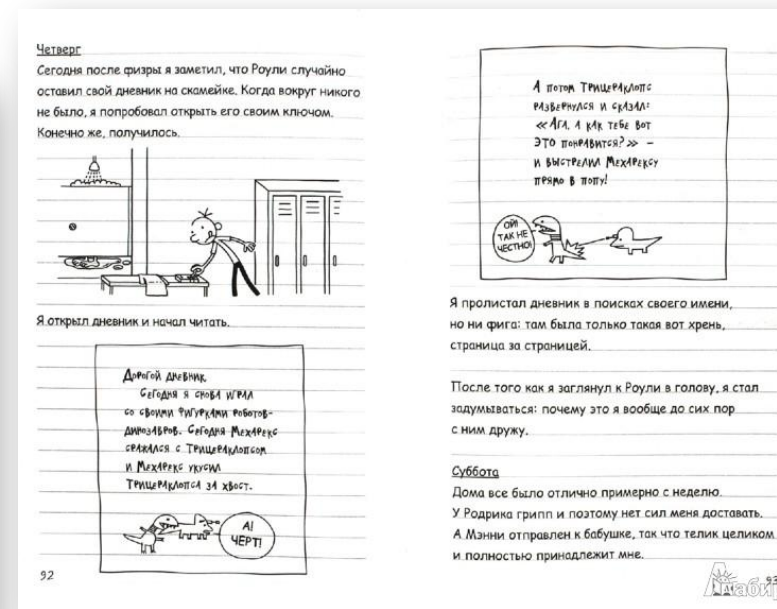 Четверг
Сегодня после физры я заметил, что Роули случайно
оставил свой дневник на скамейке. Когда вокруг никого
не было, я попробовал открыть его своим ключом.
Конечно же, получилось.
Я открыл дневник и начал читать.
Дорогой дневник,
Сегодня я снова играл
со своими фигурками роботов-
динозавров. Сегодня Мехарекс
сражался с Трицераклопсом
и Мехарекс укусил
Трицераклопса за хвост.
А!
ЧЕРТ!
92
А потом Трицераклопс
развернулся и сказал:
«Ага, а как тебе вот
это понравится?» –
и выстрелил Мехарексу
прямо в попу!
ОЙ!
ТАК НЕ
ЧЕСТНО!
Я пролистал дневник в поисках своего имени,
но ни фига: там была только такая вот хрень,
страница за страницей.
После того как я заглянул к Роули в голову, я стал
задумываться: почему это я вообще до сих пор
с ним дружу.
Суббота
Дома все было отлично примерно с неделю.
У Родрика грипп и поэтому нет сил меня доставать.
А Мэнни отправлен к бабушке, так что телик целиком
и полностью принадлежит мне.
93